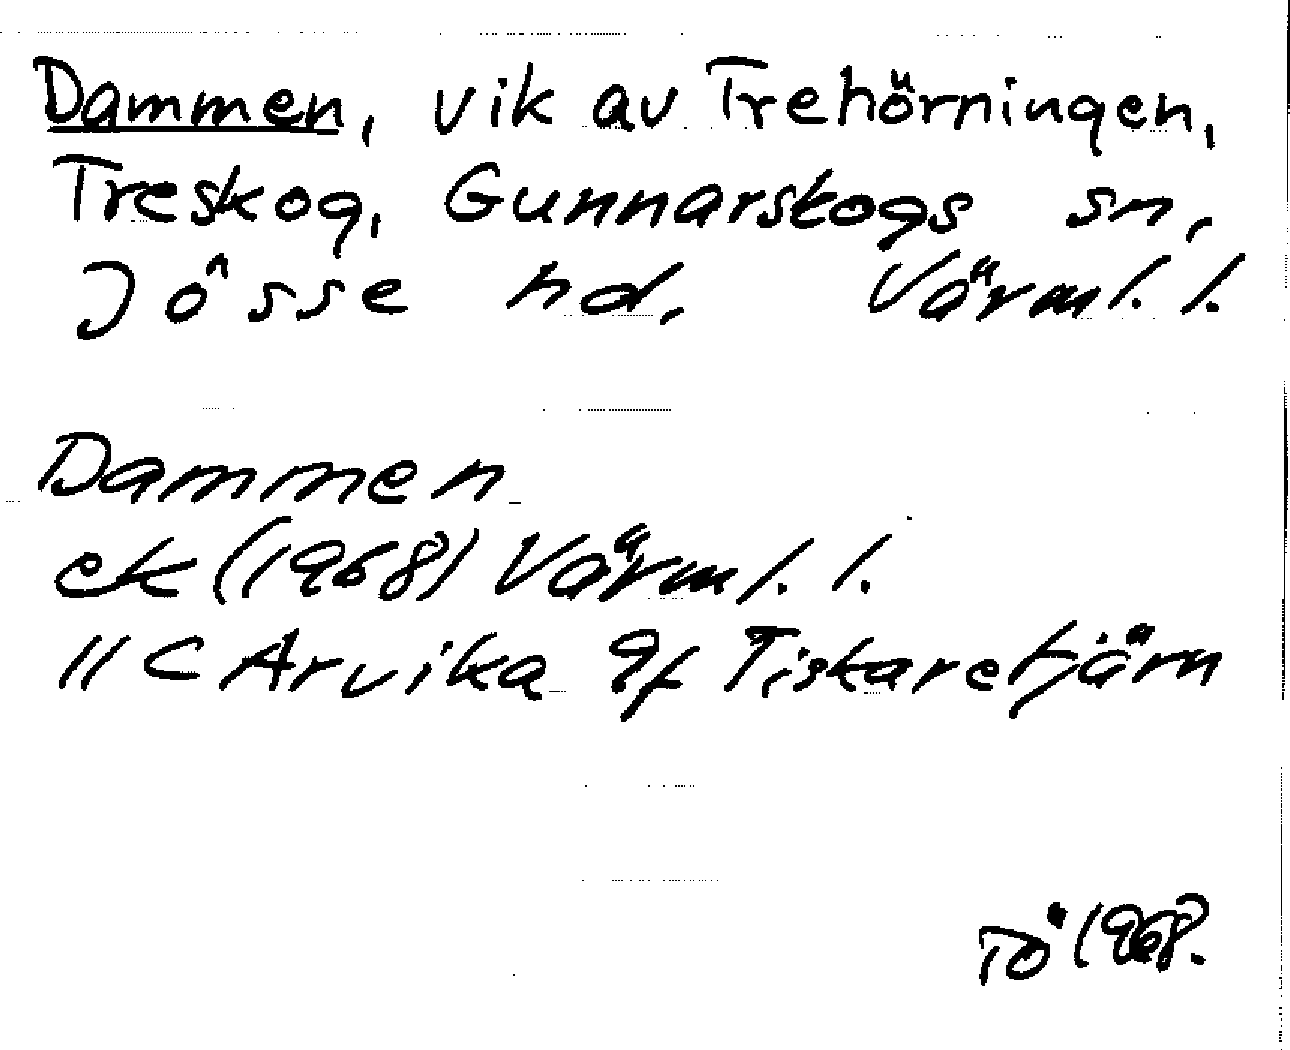 Dammen, vik av Trehörningen,
Treskog, Gunnarskogs sn,
Jösse hd, Värml. l.
Dammen
ek (1968) Värml. l.
11 C Arvika 9f Tiskaretjärn
TÖ 1968.